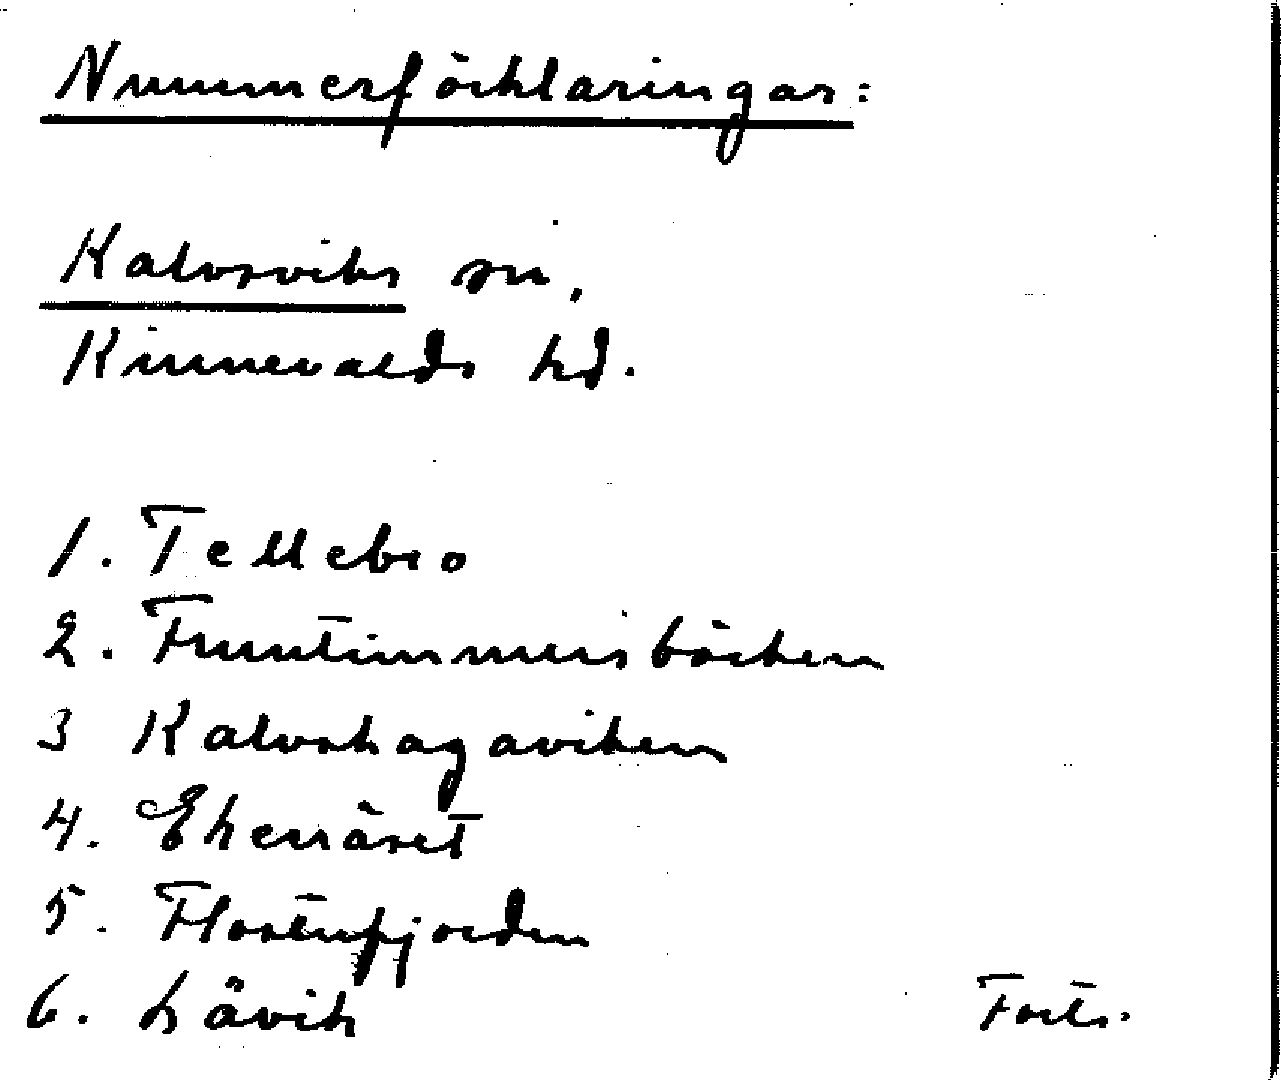 Nummerförklaringar:
Kalvsviks sn,
Kinnevalds hd.
1. Tellebro
2. Fruntimmersböcken
3 Kalvshagaviken
4. Ekenäset
5. Flostenfjorden
6. Lövik
Forts.